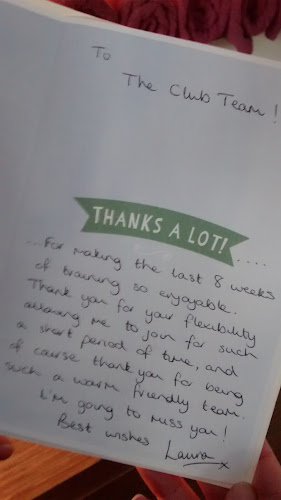 To
The Club Team!
THANKS A LOT!....
...For making the last 8 weeks
of training so enjoyable.
Thank you for your flexibility
allowing me to join for such
a short period of time, and
of course thank you for being
such a warm friendly team.
I'm going to miss you!
Best wishes
Laura x